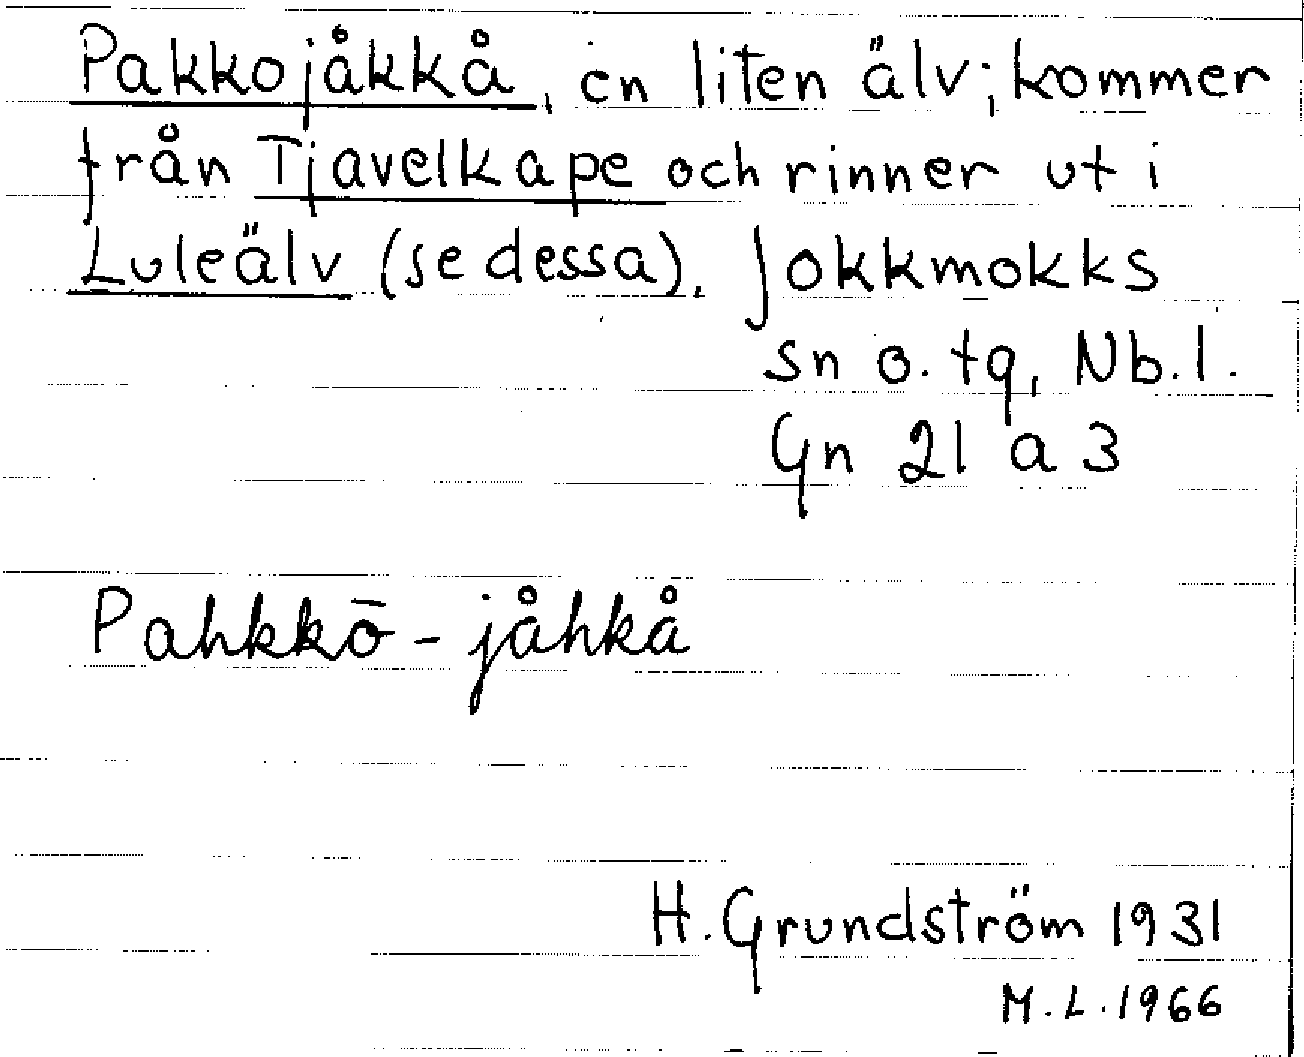 Pakkojåkkå, en liten älv; kommer
från Tjavelkape och rinner ut i
Luleälv (se dessa). Jokkmokks
sn o. tg, Nb.l.
Gn 21 a 3
Pahkkō-jåhkå
H. Grundström 1931
M.L. 1966